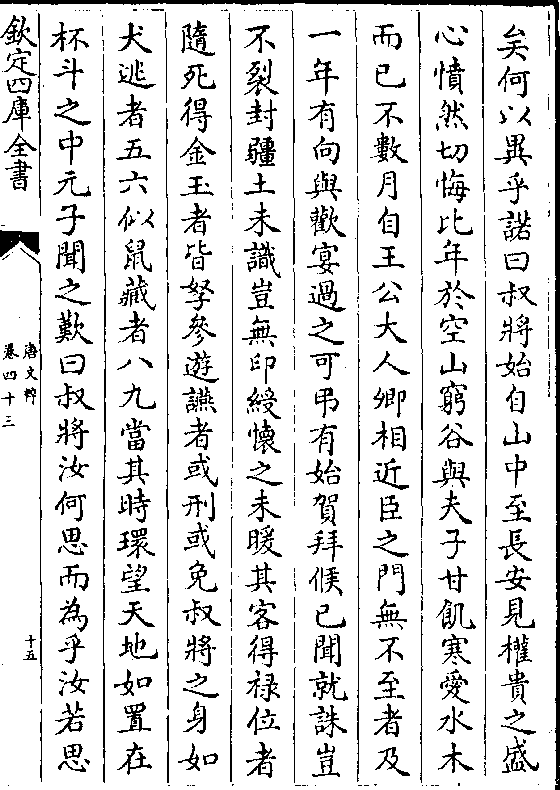 矣何以異乎諾曰叔將始自山中至長安見權貴之盛
心憤然切悔比年於空山窮谷與夫子甘飢寒愛水木
而已不數月自王公大人卿相近臣之門無不至者及
一年有向與歡宴過之可弔有始賀拜候已聞就誅豈
不裂封疆土未識豈無印綬懷之未暖其客得禄位者
隨死得金玉者皆孥參遊讌者或刑或免叔將之身如
犬逃者五六似鼠藏者八九當其時環望天地如置在
杯斗之中元子聞之歎曰叔將汝何思而為乎汝若思
欽定四庫全書
唐文粹
卷四十三
十五